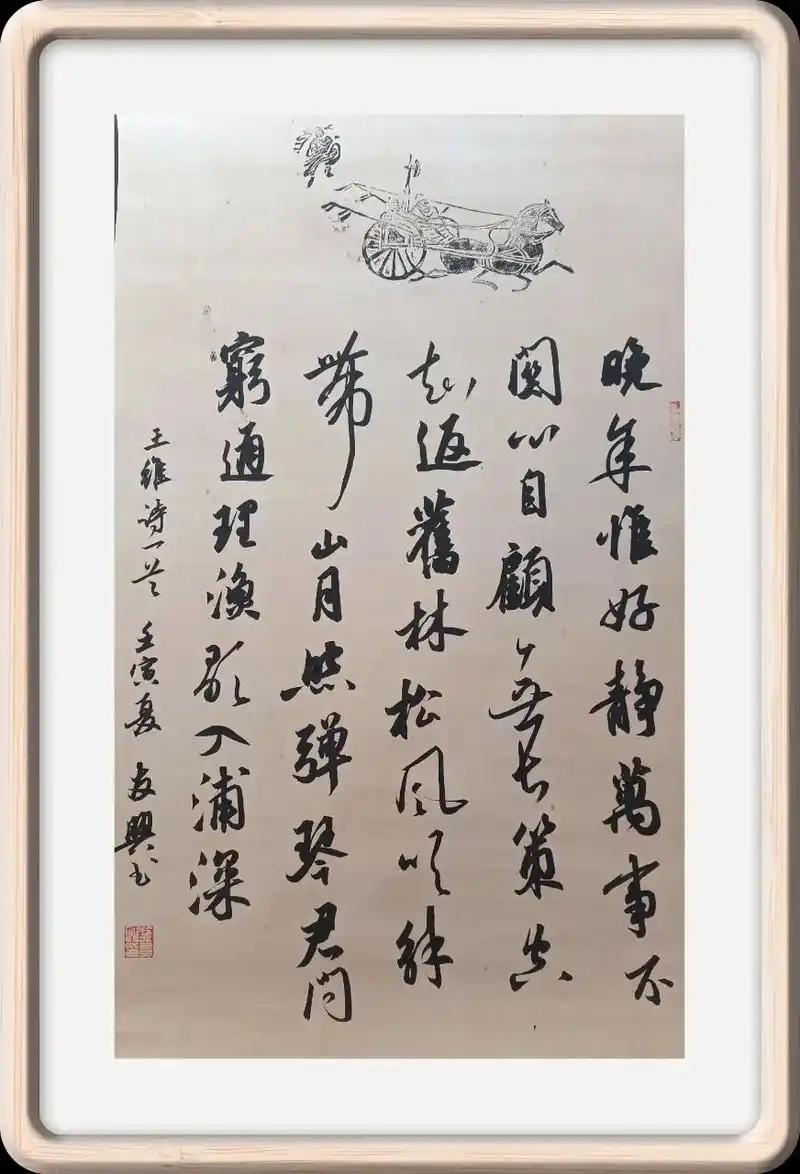 晚年惟好靜萬事不
関心自顧無長策空
知返舊林松風吹解
帶山月照彈琴君問
窮通理漁歌入浦深
王維詩一首 壬寅夏 友興書